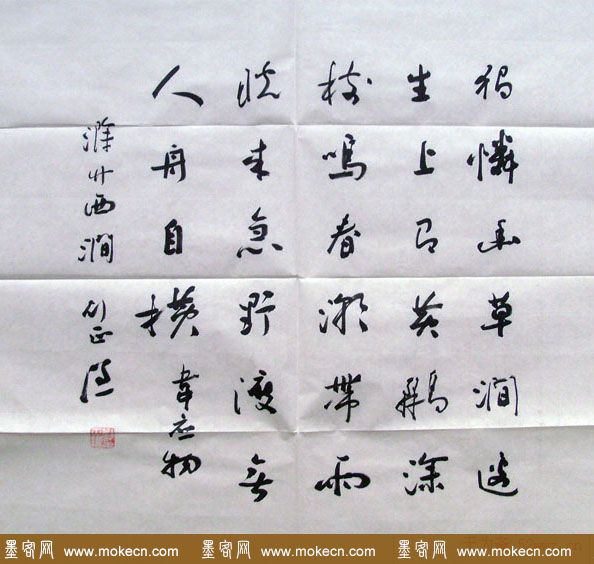 獨憐幽草澗邊
生上有黄鸝深
樹鳴春潮帶雨
晚來急野渡無
人舟自横
韋应物
滁州西澗
墨客网 www.mokecn.com 墨客网 www.mokecn.com 墨客网 www.mokecn.com